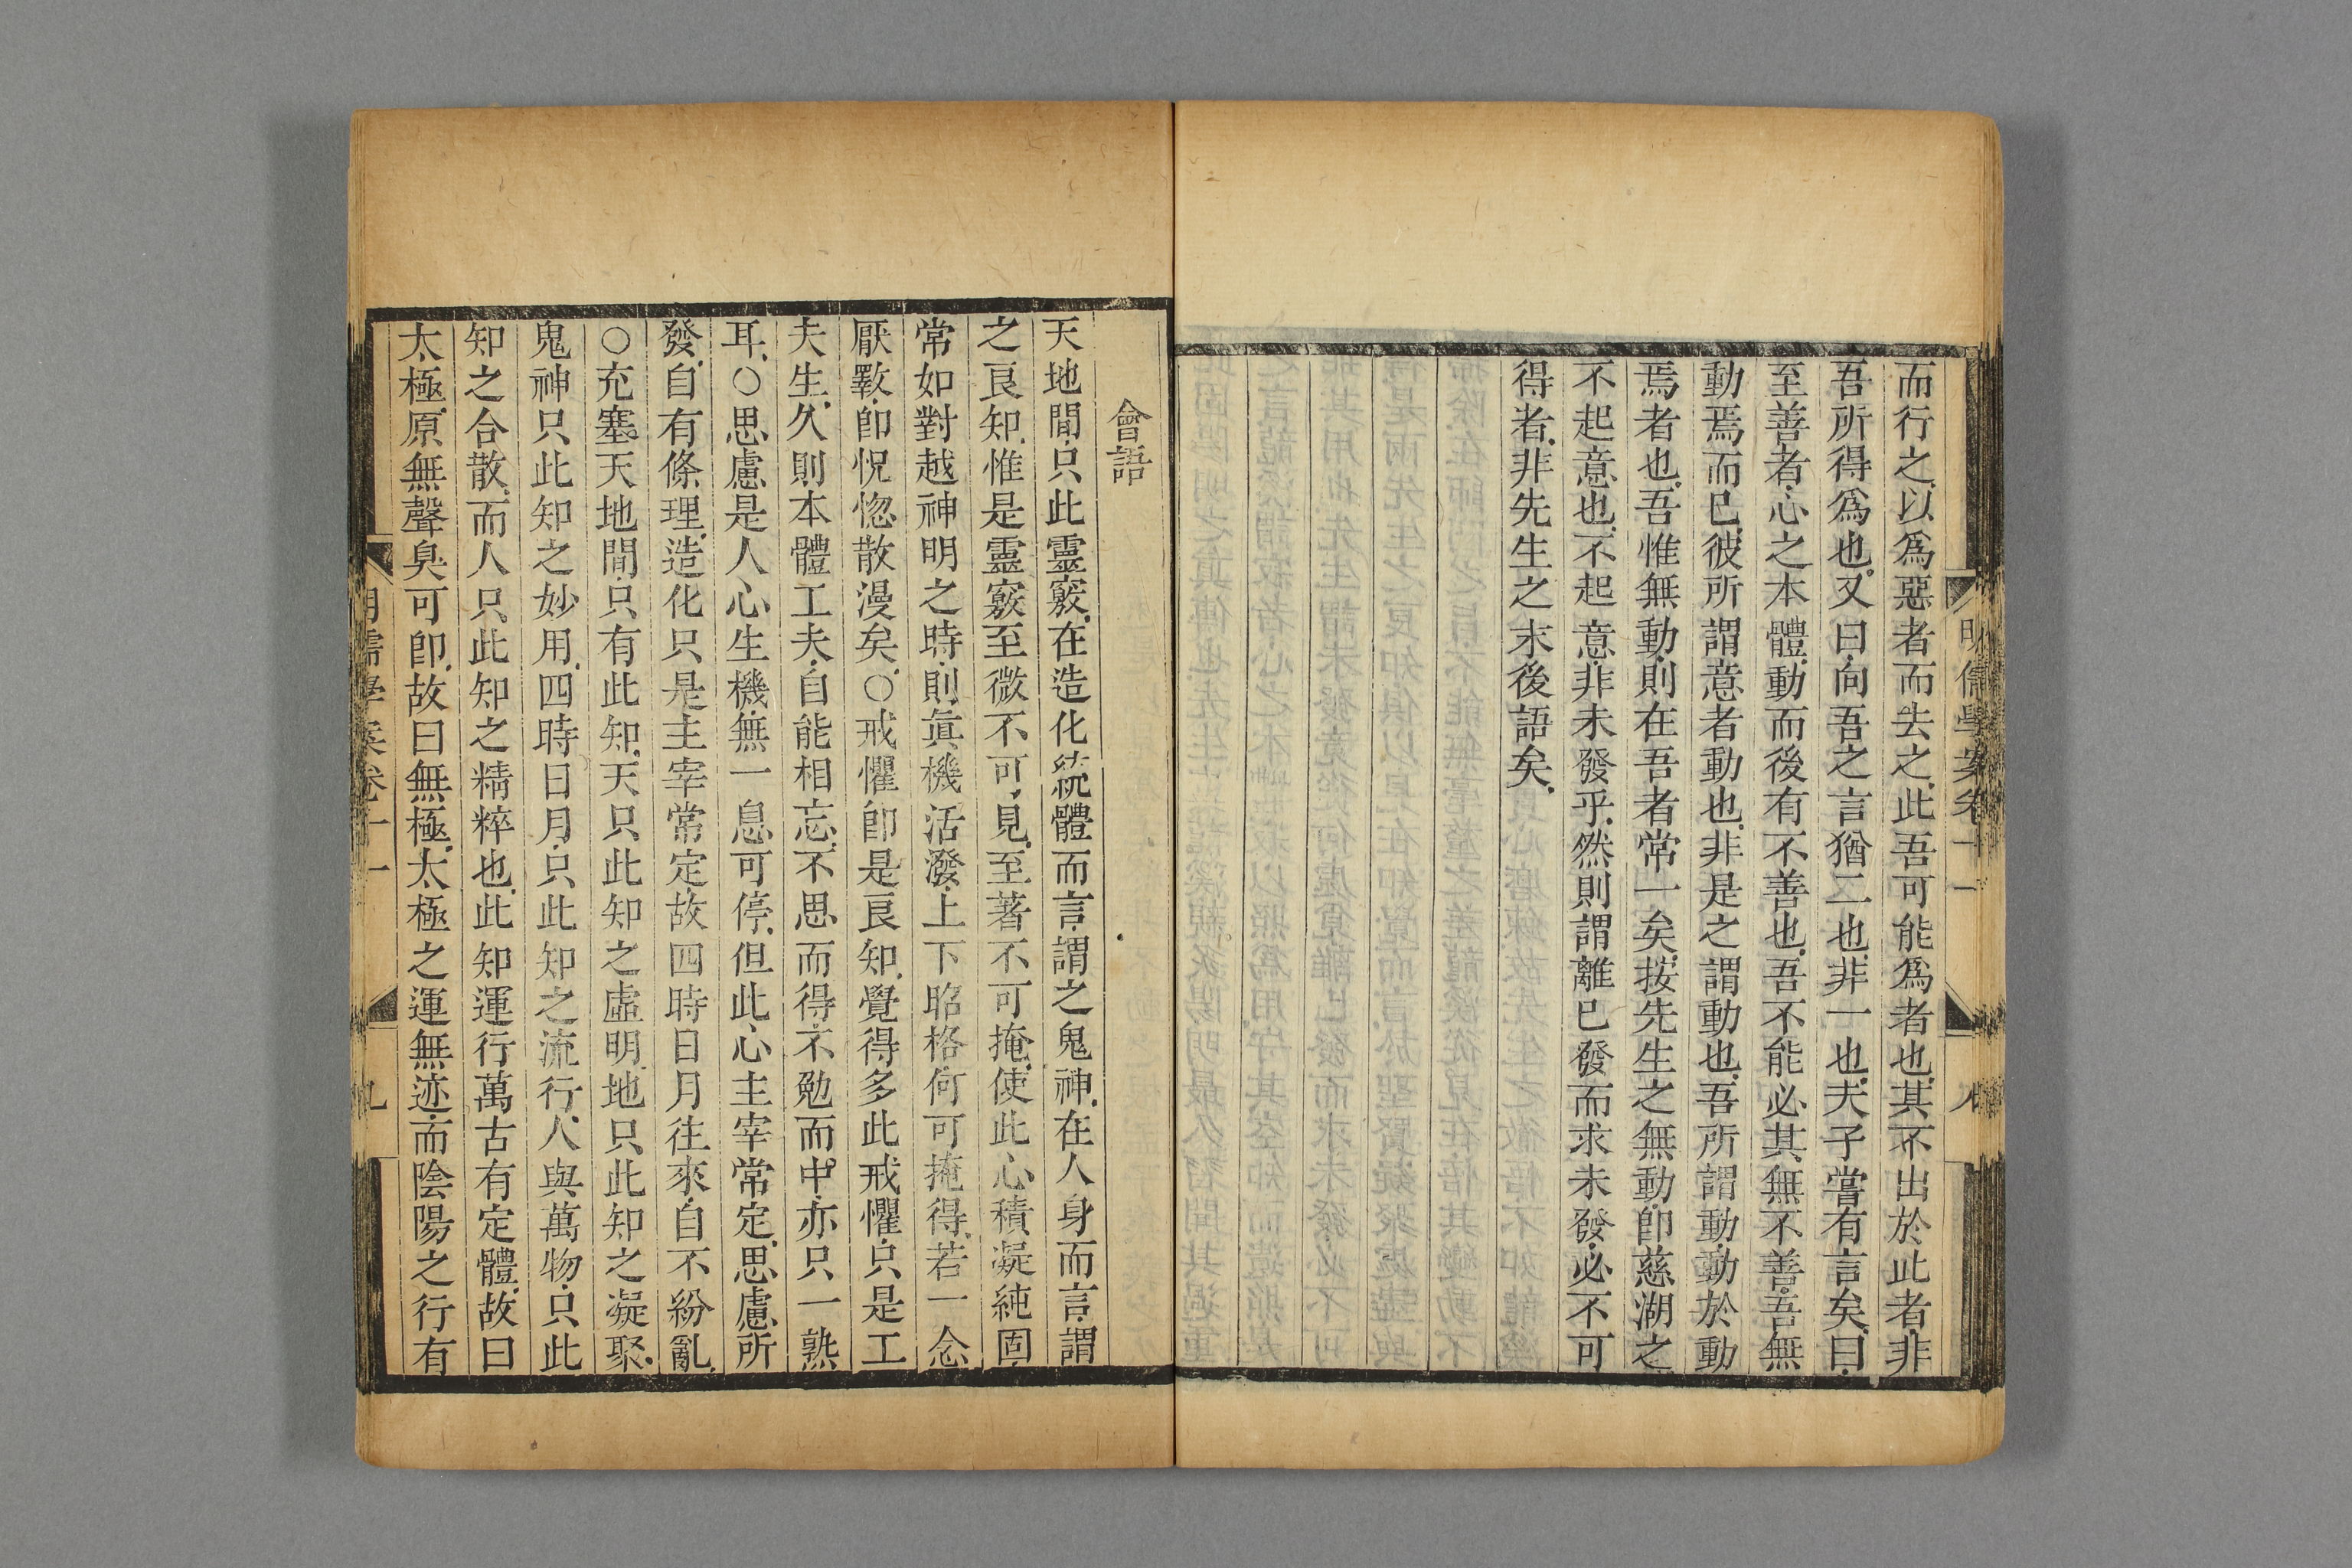 而行之以爲惡者而去之此吾可能爲者也其不出於此者非
吾所得爲也又曰向吾之言猶二也非一也夫子嘗有言矣曰
至善者心之本體動而後有不善也吾不能必其無不善吾無
動焉而已彼所謂意者動也非是之謂動也吾所謂動動於動
焉者也吾惟無動則在吾者常一矣按先生之無動即慈湖之
不起意也不起意非未發乎然則謂離已發而求未發必不可
得者非先生之末後語矣
會語
天地間只此靈竅在造化統體而言謂之鬼神在人身而言謂
之良知惟是靈竅至微不可見至著不可掩使此心積凝純固
常如對越神明之時則眞機活潑上下昭格何可掩得若一念
厭斁卽怳惚散漫矣○戒懼卽是良知覺得多此戒懼只是工
夫生久則本體工夫自能相忘不思而得不勉而中亦只一熟
耳○思慮是人心生機無一息可停但此心主宰常定思慮所
發自有條理造化只是主宰常定故四時日月往來自不紛亂
○充塞天地間只有此知天只此知之虛明地只此知之凝聚
鬼神只此知之妙用四時日月只此知之流行人與萬物只此
知之合散而人只此知之精粹也此知運行萬古有定體故曰
太極原無聲臭可卽故曰無極太極之運無迹而陰陽之行有